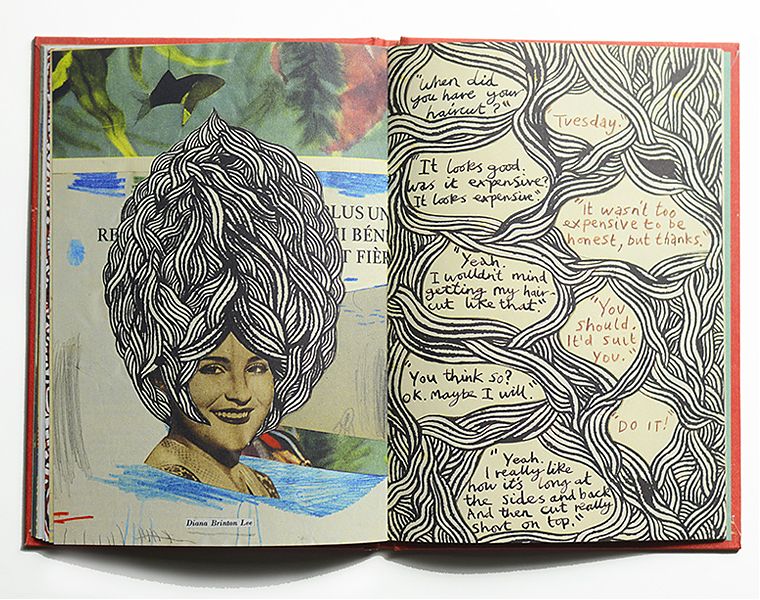 LUS UN
RE
BÉN
FIÈR
Diana Brinton Lee
"When did
you have your
haircut?"
"Tuesday."
"It looks good.
was it expensive?
It looks expensive"
"It wasn't too
expensive to be
honest, but thanks."
"Yeah.
I wouldn't mind
getting my hair-
cut like that."
"You
should.
It'd suit
you."
"You think so?
OK. Maybe I will."
"DO IT!"
"Yeah.
I really like
how it's long at
the sides and back
And then cut really
short on top."